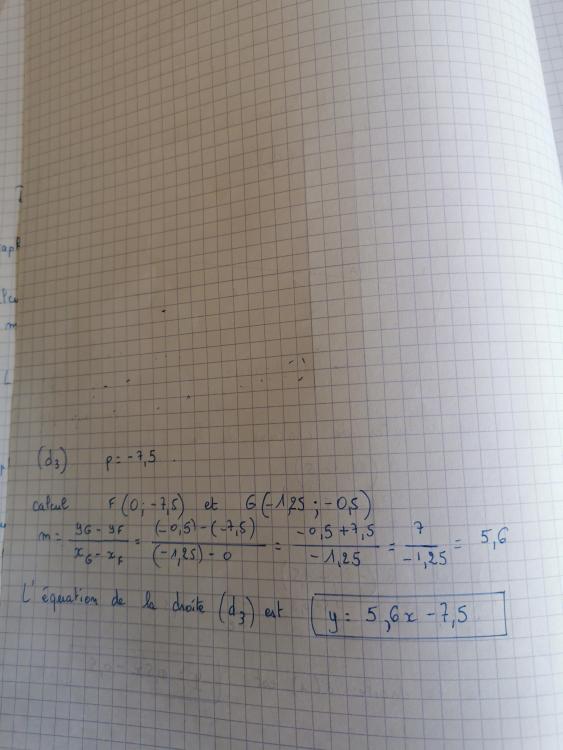 (d₃) p = -7,5
calcul F(0; -7,5) et G(-1,25; -0,5)
m = (yG - yF)/(xG - xF) = ((-0,5) - (-7,5))/((-1,25) - 0) = (-0,5 + 7,5)/(-1,25) = 7/(-1,25) = 5,6
L'équation de la droite (d₃) est y = 5,6x - 7,5